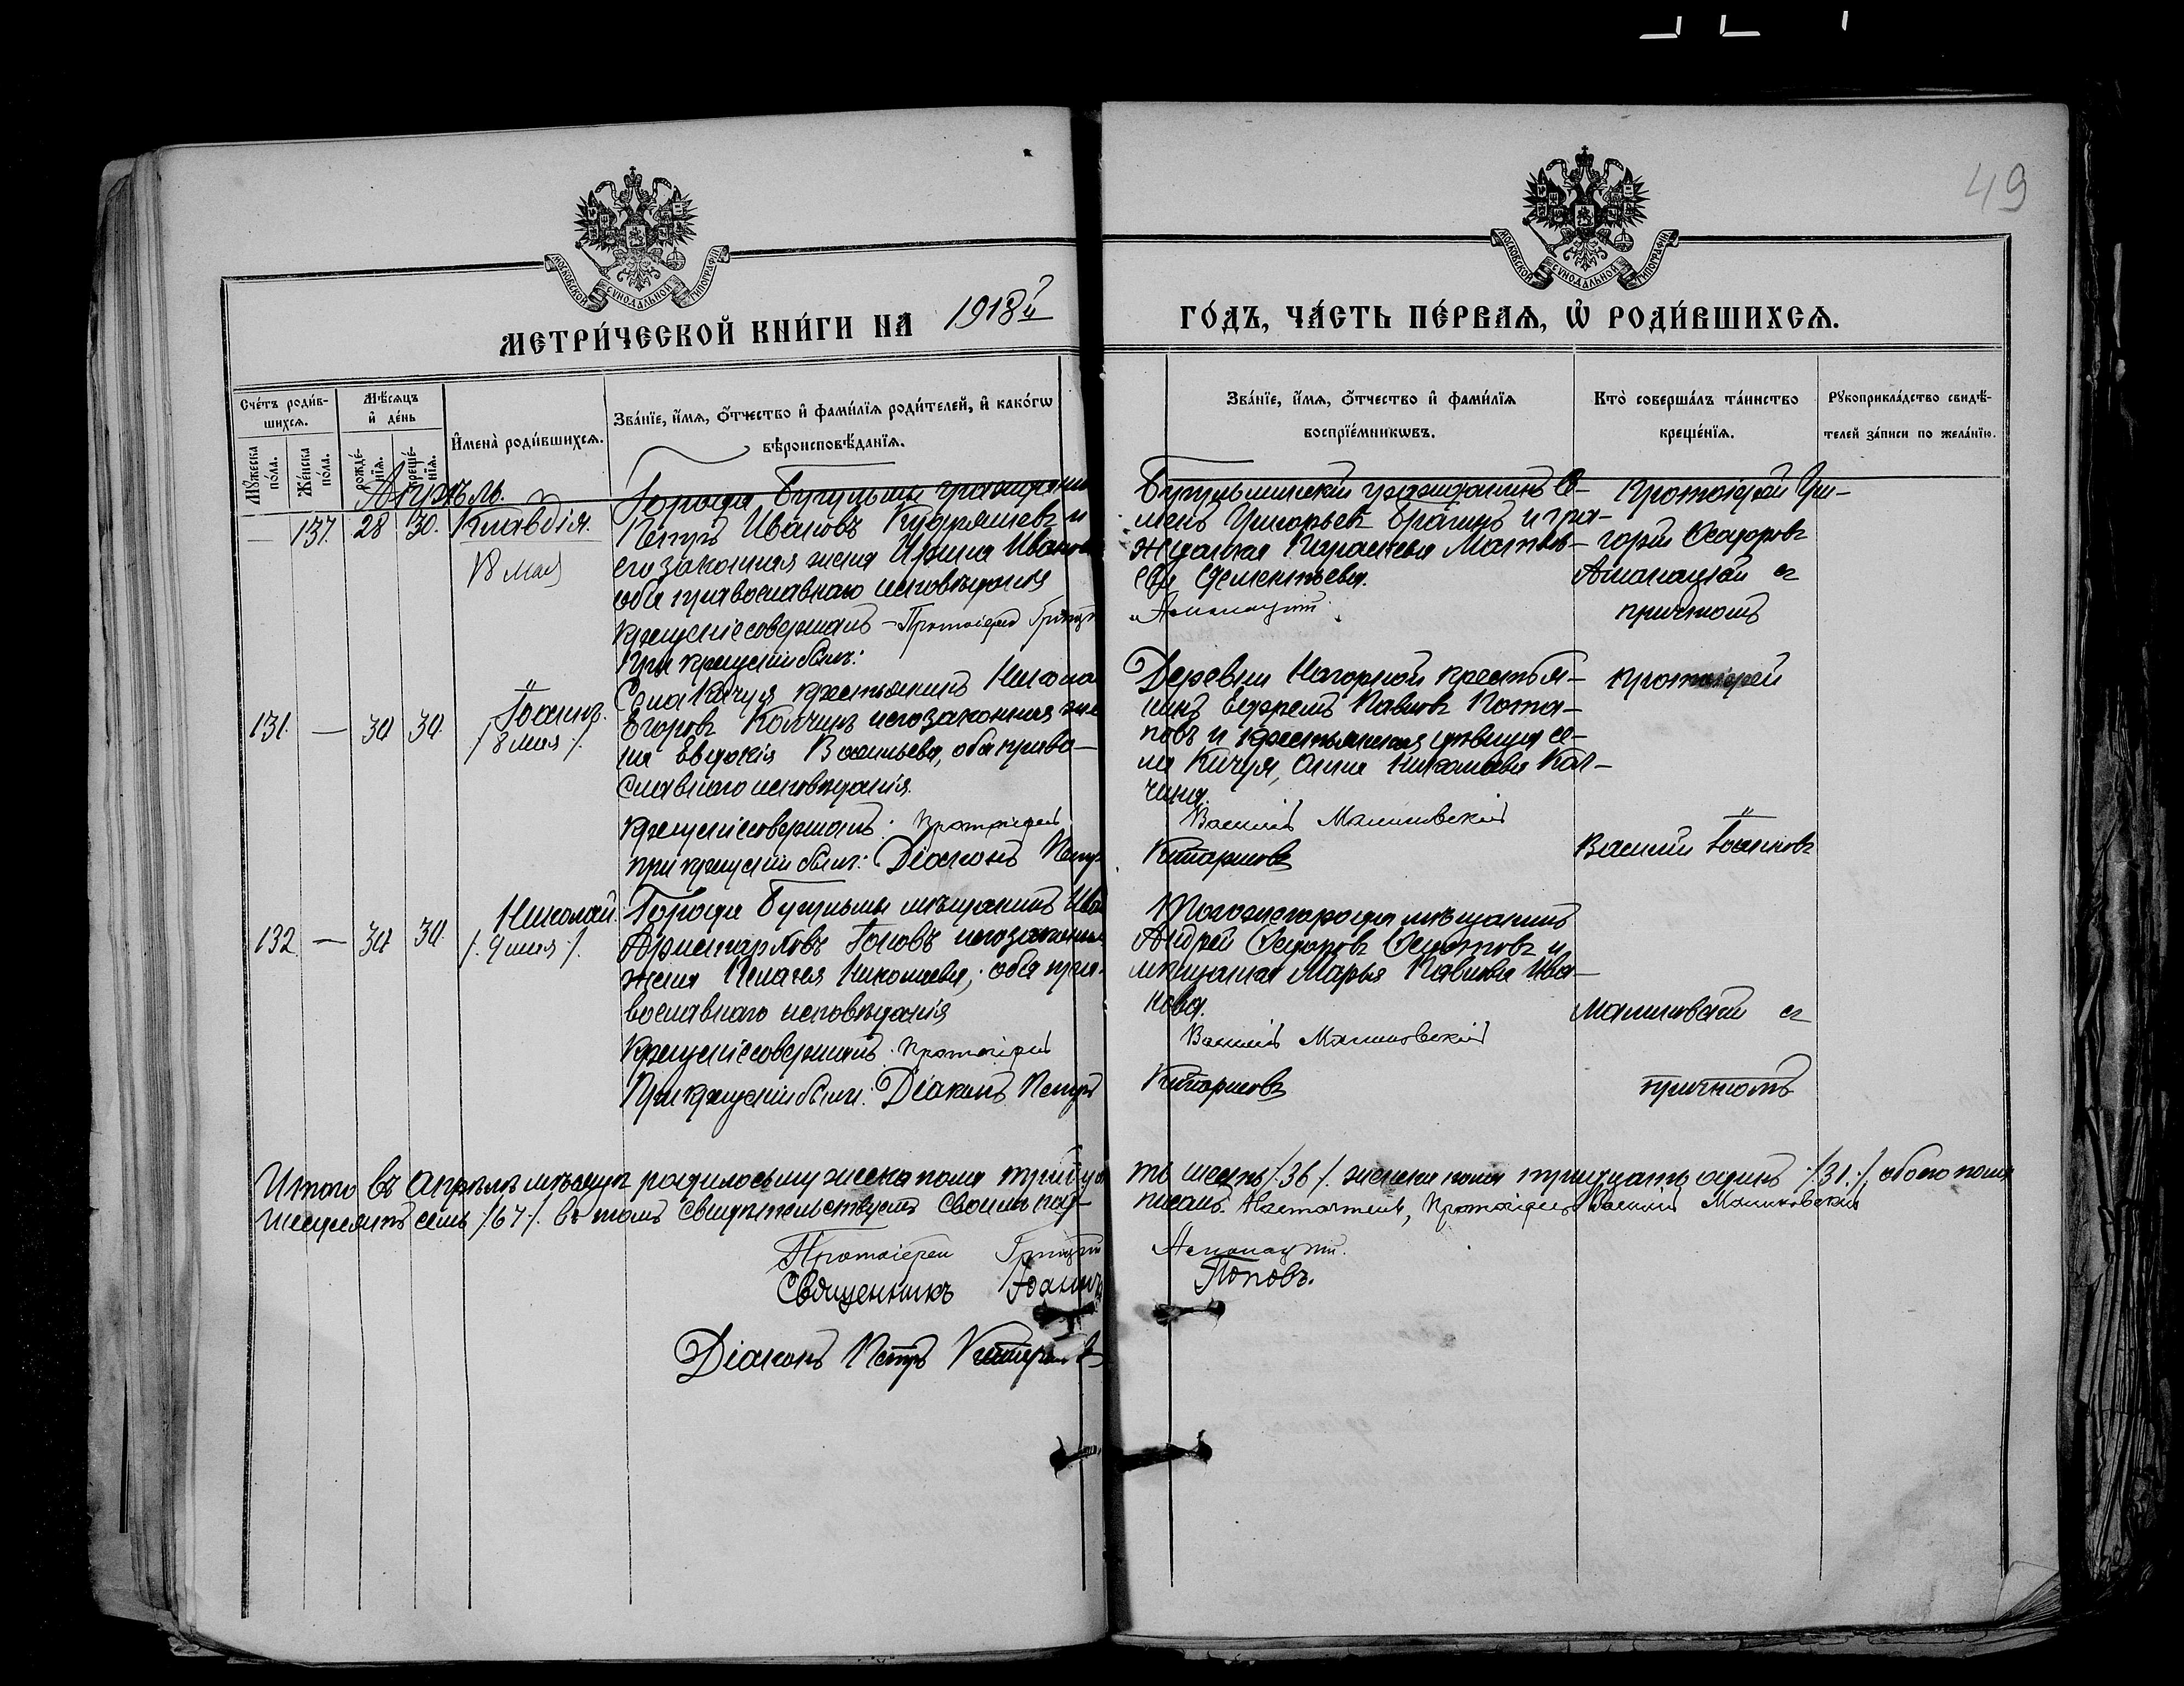 49
МОСКОВСКОЙ СѴНОДАЛЬНОЙ ТИПОГРАФІИ
МОСКОВСКОЙ СѴНОДАЛЬНОЙ ТИПОГРАФІИ
МЕТРИ́ЧЕСКОЙ КНИ́ГИ НА 1918й
ГО́ДЪ, ЧА́СТЬ ПЕ́РВАѦ, Ѡ҆ РОДИ́ВШИХСѦ.
Сче́тъ роди́вшихсѧ.
Мꙋ́жеска по́ла.
Же́нска по́ла.
Мѣ́сѧцъ и҆ де́нь
рожде́нїѧ.
креще́нїѧ.
И҆мена̀ роди́вшихсѧ.
Зва́нїе, и҆́мѧ, ѻ҆́тчество и҆ фами́лїѧ роди́телей, и҆ како́гѡ
вѣроисповѣ́данїѧ.
Зва́нїе, и҆́мѧ, ѻ҆́тчество и҆ фами́лїѧ
воспрїе́мникѡвъ.
Кто̀ соверша́лъ та́инство
креще́нїѧ.
Рꙋкоприкла́дство свидѣ́-
телей за́писи по жела́нїю.
Апрѣль.
— 137. 28 30. Клавдія.
/ 8 мая
Города Бугульмы гражданинъ
Петръ Ивановъ Кудряшевъ и
его законная жена Ирина Иванова
оба православнаго исповѣданія
Крещеніе совершалъ - Протоіерей Григорій
При крещеніи былъ:
Бугульминскій гражданинъ Се-
менъ Григорьевъ Брагинъ и гра-
жданка Параскева Матвѣ-
ева Дементьева.
Протоіерей Гри-
горій Ѳеодоровъ
съ
причтомъ
131. — 30 30. Іоаннъ.
/ 8 мая /.
Села Кичуя крестьянинъ Никола
Егоровъ Колчинъ и его законная же
на Евдокія Васильева, оба право-
славнаго исповѣданія.
Крещеніе совершалъ: Протоіерей
при крещеніи былъ: Діаконъ Петръ
Деревни Нагорной крестья-
нинъ Ефремъ Павловъ Пота-
повъ и крестьянская дѣвица се-
ла Кичуя, Анна Николаева Кол-
чина.
Василій Малиновскій
Протоіерей
Василій Іоанновъ
132 — 30 30. Николай.
/. 9 мая /.
Города Бугульмы мѣщанинъ Ива
Аристарховъ Поповъ и его законная
жена Пелагея Николаева, оба пра-
вославнаго исповѣданія
Крещеніе совершалъ. Протоіерей
При крещеніи были: Діаконъ Петръ
Того же города мѣщанинъ
Андрей Ѳедоровъ Ѳедотовъ и
мѣщанка Марья Павлова Ива-
нова.
Василій Малиновскій
Малиновскій съ
причтомъ
Итого въ Апрѣлѣ мѣсяцѣ родилось мужеска пола тридца
ть шесть /.36 /. женска пола тридцать одинъ /.31./, обоего пола
шестьдесятъ семь /67/. въ томъ свидѣтельствуетъ своимъ под-
писомъ. Настоятель, Протоіерей Василій Малиновскій
Протоіерей Григорій
Священникъ Іоаннъ Поповъ.
Діаконъ Петръ